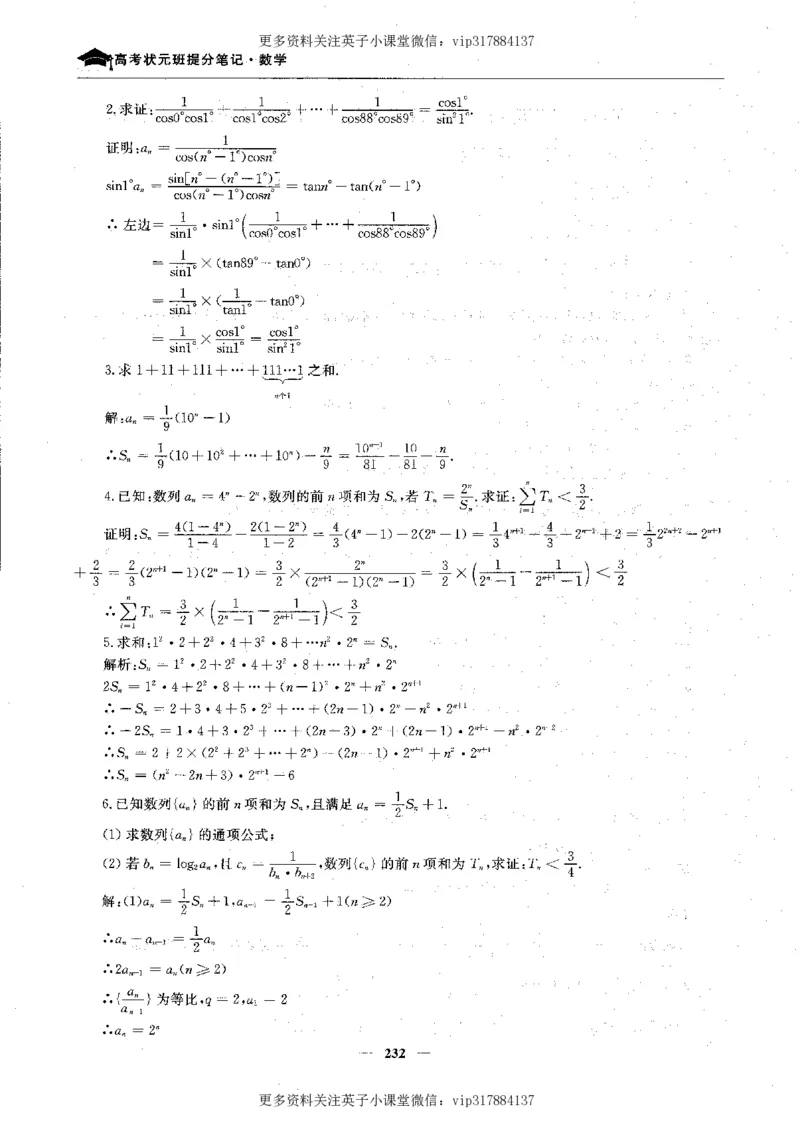 更多资料关注英子小课堂微信：vip317884137
高考状元班提分笔记·数学
2.求证:1/(cos0°cos1°) + 1/(cos1°cos2°) + ··· + 1/(cos88°cos89°) = cos1°/sin²1°.
证明:aₙ = 1/(cos(n°－1°)cosn°)
sin1°aₙ = sin[n°－(n°－1°)]/(cos(n°－1°)cosn°) = tann°－tan(n°－1°)
∴ 左边= 1/sin1° · sin1°(1/(cos0°cos1°) + ··· + 1/(cos88°cos89°))
= 1/sin1° × (tan89°－tan0°)
= 1/sin1° × (1/tan1° －tan0°)
= 1/sin1° × cos1°/sin1° = cos1°/sin²1°
3.求 1+11+111+···+111···1 之和.
n个1
解:aₙ = 1/9(10ⁿ－1)
∴Sₙ = 1/9(10+10²+···+10ⁿ)－n/9 = 10ⁿ⁺¹/81－10/81－n/9.
4.已知:数列 aₙ = 4ⁿ－2ⁿ,数列的前 n 项和为 Sₙ,若 Tₙ = 2ⁿ/Sₙ.求证:∑ⁿᵢ₌₁Tₙ < 3/2.
证明:Sₙ = 4(1－4ⁿ)/(1－4)－2(1－2ⁿ)/(1－2) = 4/3(4ⁿ－1)－2(2ⁿ－1) = 1/3 4ⁿ⁺¹－4/3－2ⁿ⁺¹+2 = 1/3 2²ⁿ⁺²－2ⁿ⁺¹
+2/3 = 2/3(2ⁿ⁺¹－1)(2ⁿ－1) = 3/2 × 2ⁿ/((2ⁿ⁺¹－1)(2ⁿ－1)) = 3/2 × (1/(2ⁿ－1)－1/(2ⁿ⁺¹－1)) < 3/2
∴∑ⁿᵢ₌₁Tₙ = 3/2 × (1/(2ⁿ－1)－1/(2ⁿ⁺¹－1)) < 3/2
5.求和:1²·2+2²·4+3²·8+···n²·2ⁿ = Sₙ.
解析:Sₙ = 1²·2+2²·4+3²·8+···+n²·2ⁿ
2Sₙ = 1²·4+2²·8+···+(n－1)²·2ⁿ+n²·2ⁿ⁺¹
∴－Sₙ = 2+3·4+5·2³+···+(2n－1)·2ⁿ－n²·2ⁿ⁺¹
∴－2Sₙ = 1·4+3·2³+···+(2n－3)·2ⁿ+(2n－1)·2ⁿ⁺¹－n²·2ⁿ⁺²
∴Sₙ = 2+2×(2²+2³+···+2ⁿ)－(2n－1)·2ⁿ⁺¹+n²·2ⁿ⁺¹
∴Sₙ = (n²－2n+3)·2ⁿ⁺¹－6
6.已知数列{aₙ}的前 n 项和为 Sₙ,且满足 aₙ = 1/2 Sₙ+1.
(1) 求数列{aₙ}的通项公式;
(2) 若 bₙ = log₂aₙ,且 cₙ = 1/(bₙ·bₙ₊₂),数列{cₙ}的前 n 项和为 Tₙ,求证:Tₙ < 3/4.
解:(1)aₙ = 1/2 Sₙ+1,aₙ₋₁ = 1/2 Sₙ₋₁+1(n≥2)
∴aₙ－aₙ₋₁ = 1/2 aₙ
∴2aₙ₋₁ = aₙ(n≥2)
∴{aₙ/aₙ₋₁}为等比,q = 2,a₁ = 2
∴aₙ = 2ⁿ
— 232 —
更多资料关注英子小课堂微信：vip317884137